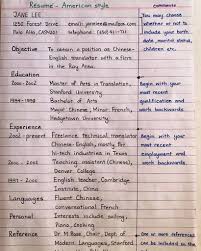 Resume - American style
comments
JANE LEE
1250 Forest Drive
Palo Alto, CA
You may choose
whether or not to
include your birth
date, marital status,
children etc.
Objective
To obtain a position as Chinese-
English translator with a firm
in the Bay Area.
Education
2000-2002
Master of Arts in Translation,
Stanford University
Bachelor of Arts
Major: Chinese, Minor: French,
University
Begin with your
most recent
qualification and
work backwards.
Experience
2002-present
Freelance technical translator
Chinese-English, mostly for
hi-tech industries in Texas
Teaching assistant (Chinese),
Denver College
English teacher, Cambridge
Institute, China
Begin with your
most recent
employment and
work backwards.
Languages
Fluent Chinese,
conversational French
Personal
Interests include sailing,
piano, cooking
Reference
Dr. M Rose, Chair, Dept. of
Modern Languages, Stanford